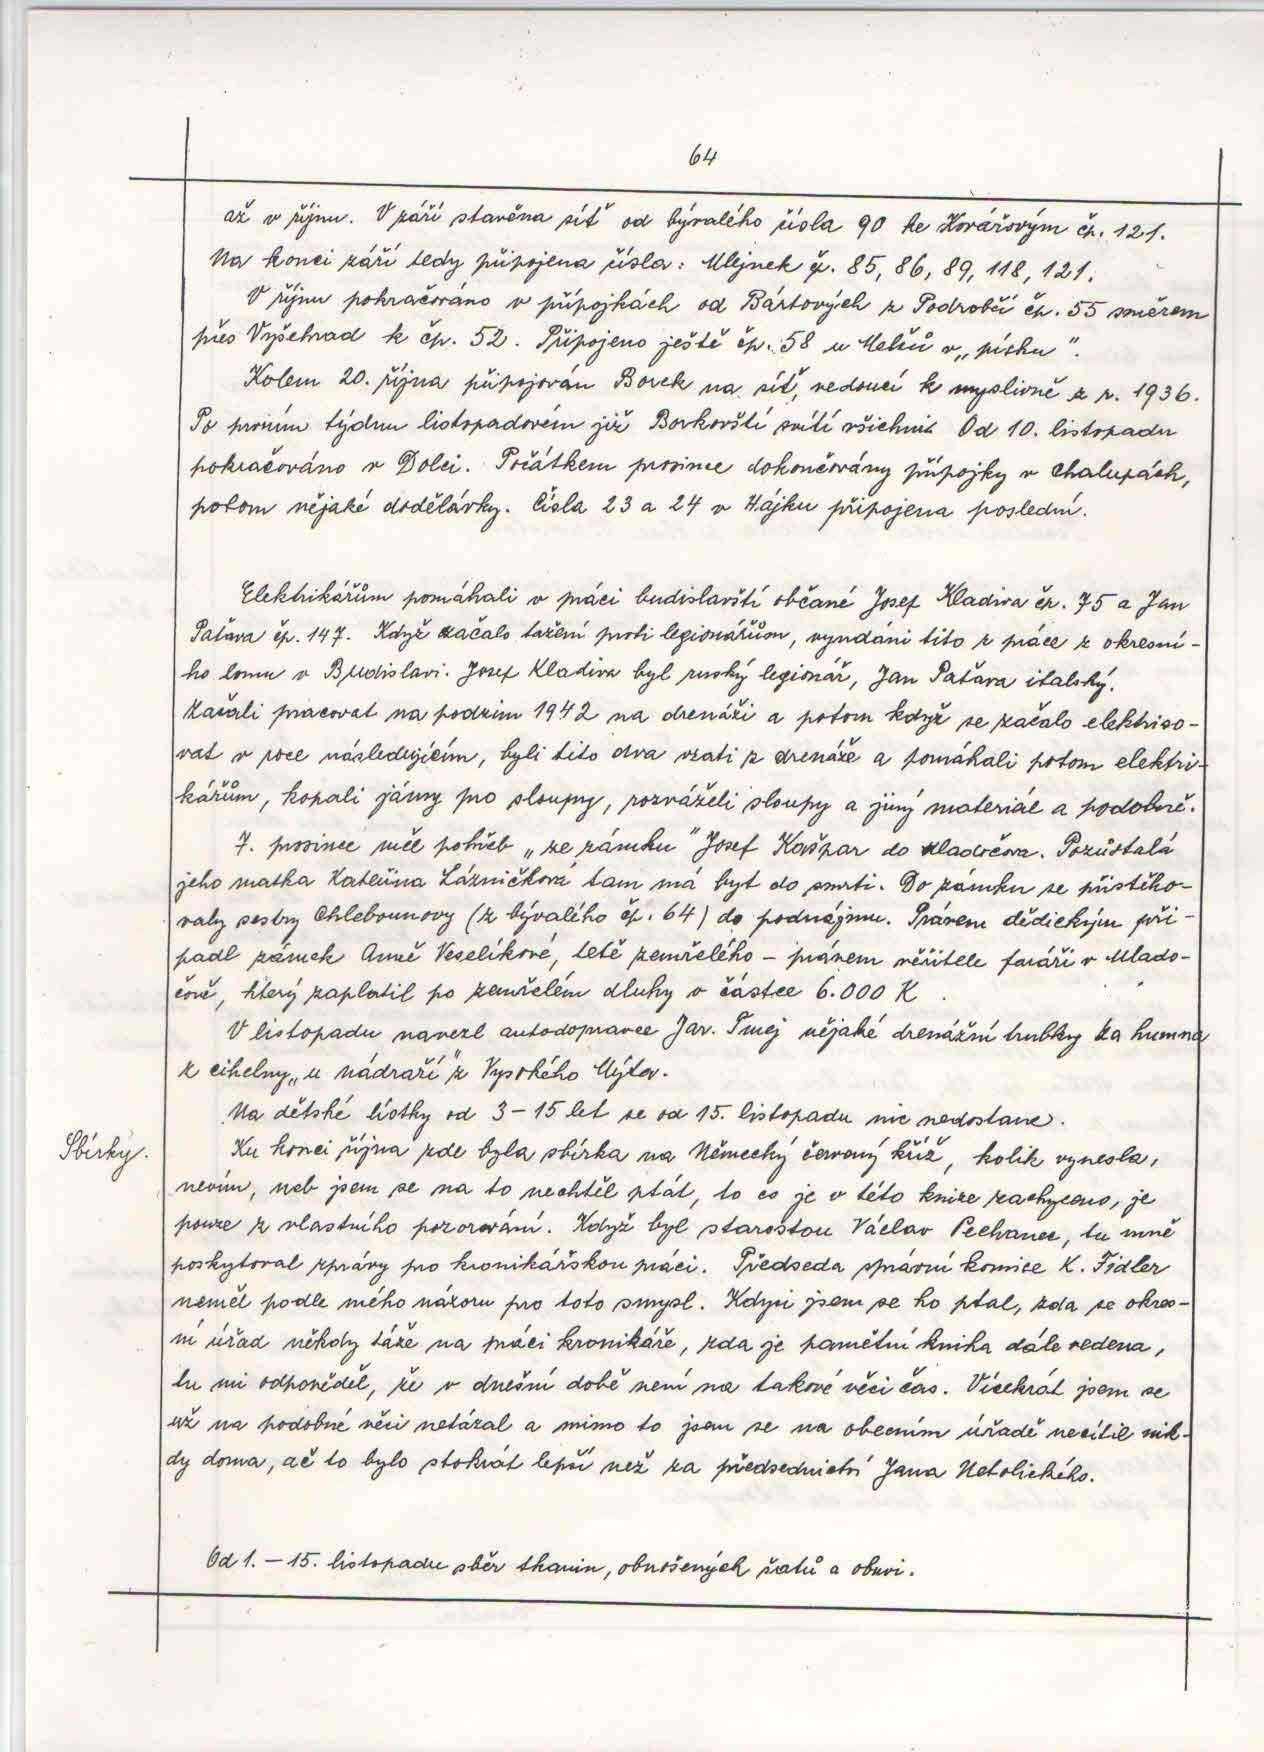 64
až v říjnu. V září stavěna síť od bývalého čísla 90 ke Kovářovým čp. 121.
Na konci září tedy připojena čísla: Mlejnek čp. 85, 86, 89, 118, 121.
V říjnu pokračováno v přípojkách od Bártových z Podrobčí čp. 55 směrem
přes Vyšehrad k čp. 52. Připojeno ještě čp. 58 u Melšů v „písku".
Kolem 20. října připojován Borek na síť, vedoucí k myslivně z r. 1936.
Po prvním týdnu listopadovém již Borkovští svítí všichni. Od 10. listopadu
pokračováno v Dolci. Počátkem prosince dokončovány přípojky v Chalupách,
potom nějaké dodělávky. Čísla 23 a 24 v Hájku připojena poslední.
Elektrikářům pomáhali v práci budislavští občané Josef Kladiva čp. 75 a Jan
Paťava čp. 147. Když začalo tažení proti legionářům, vyndáni tito z práce z okresní-
ho lomu v Budislavi. Josef Kladiva byl ruský legionář, Jan Paťava italský.
Začali pracovat na podzim 1942 na drenáži a potom když se začalo elektriso-
vat v roce následujícím, byli tito dva vzati z drenáže a pomáhali potom elektri-
kářům, kopali jámy pro sloupy, rozváželi sloupy a jiný materiál a podobně.
7. prosince měl pohřeb „ze zámku" Josef Kašpar do Mladočova. Pozůstalá
jeho matka Kateřina Lázničková tam má byt do smrti. Do zámku se přistěho-
valy sestry Chlebounovy (z bývalého čp. 64) do podnájmu. Právem dědickým při-
padl zámek Anně Veselíkové, tetě zemřelého – právem věřitele faráři v Mlado-
čově, který zaplatil po zemřelém dluhy v částce 6.000 K.
V listopadu navezl autodopravce Jar. Tmej nějaké drenážní trubky za humna
z cihelny „u nádraží" z Vysokého Mýta.
Na dětské lístky od 3–15 let se od 15. listopadu nic nedostane.
Sbírky.
Ku konci října zde byla sbírka na Německý červený kříž, kolik vynesla,
nevím, neb jsem se na to nechtěl ptát, to co je v této knize zachyceno, je
pouze z vlastního pozorování. Když byl starostou Václav Pechanec, tu mně
poskytoval zprávy pro kronikářskou práci. Předseda správní komise K. Fidler
neměl podle mého názoru pro toto smysl. Kdysi jsem se ho ptal, zda se okres-
ní úřad někdy táže na práci kronikáře, zda je pamětní kniha dále vedena,
tu mi odpověděl, že v dnešní době není na takové věci čas. Vícekrát jsem se
už na podobné věci netázal a mimo to jsem se na obecním úřadě necítil nik-
dy doma, ač to bylo stokrát lepší než za předsednictví Jana Netolického.
Od 1. – 15. listopadu sběr tkanin, obnošených šatů a obuvi.